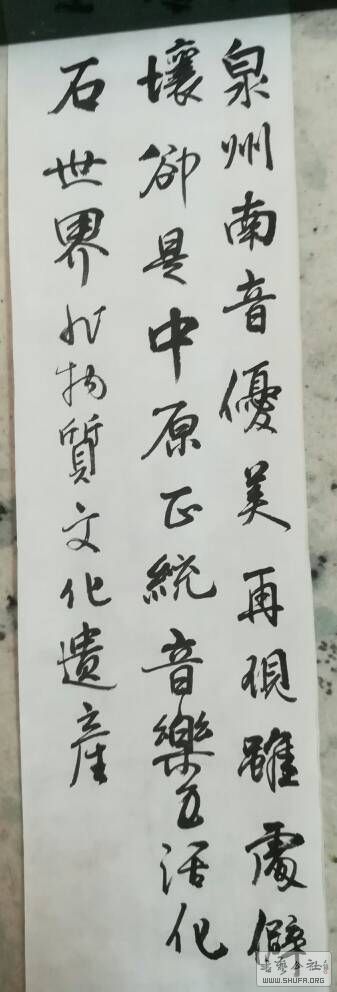 泉州南音優美再現雖處僻
壤卻是中原正統音樂之活化
石世界非物質文化遺產
書藝公社
WWW.SHUFA.ORG